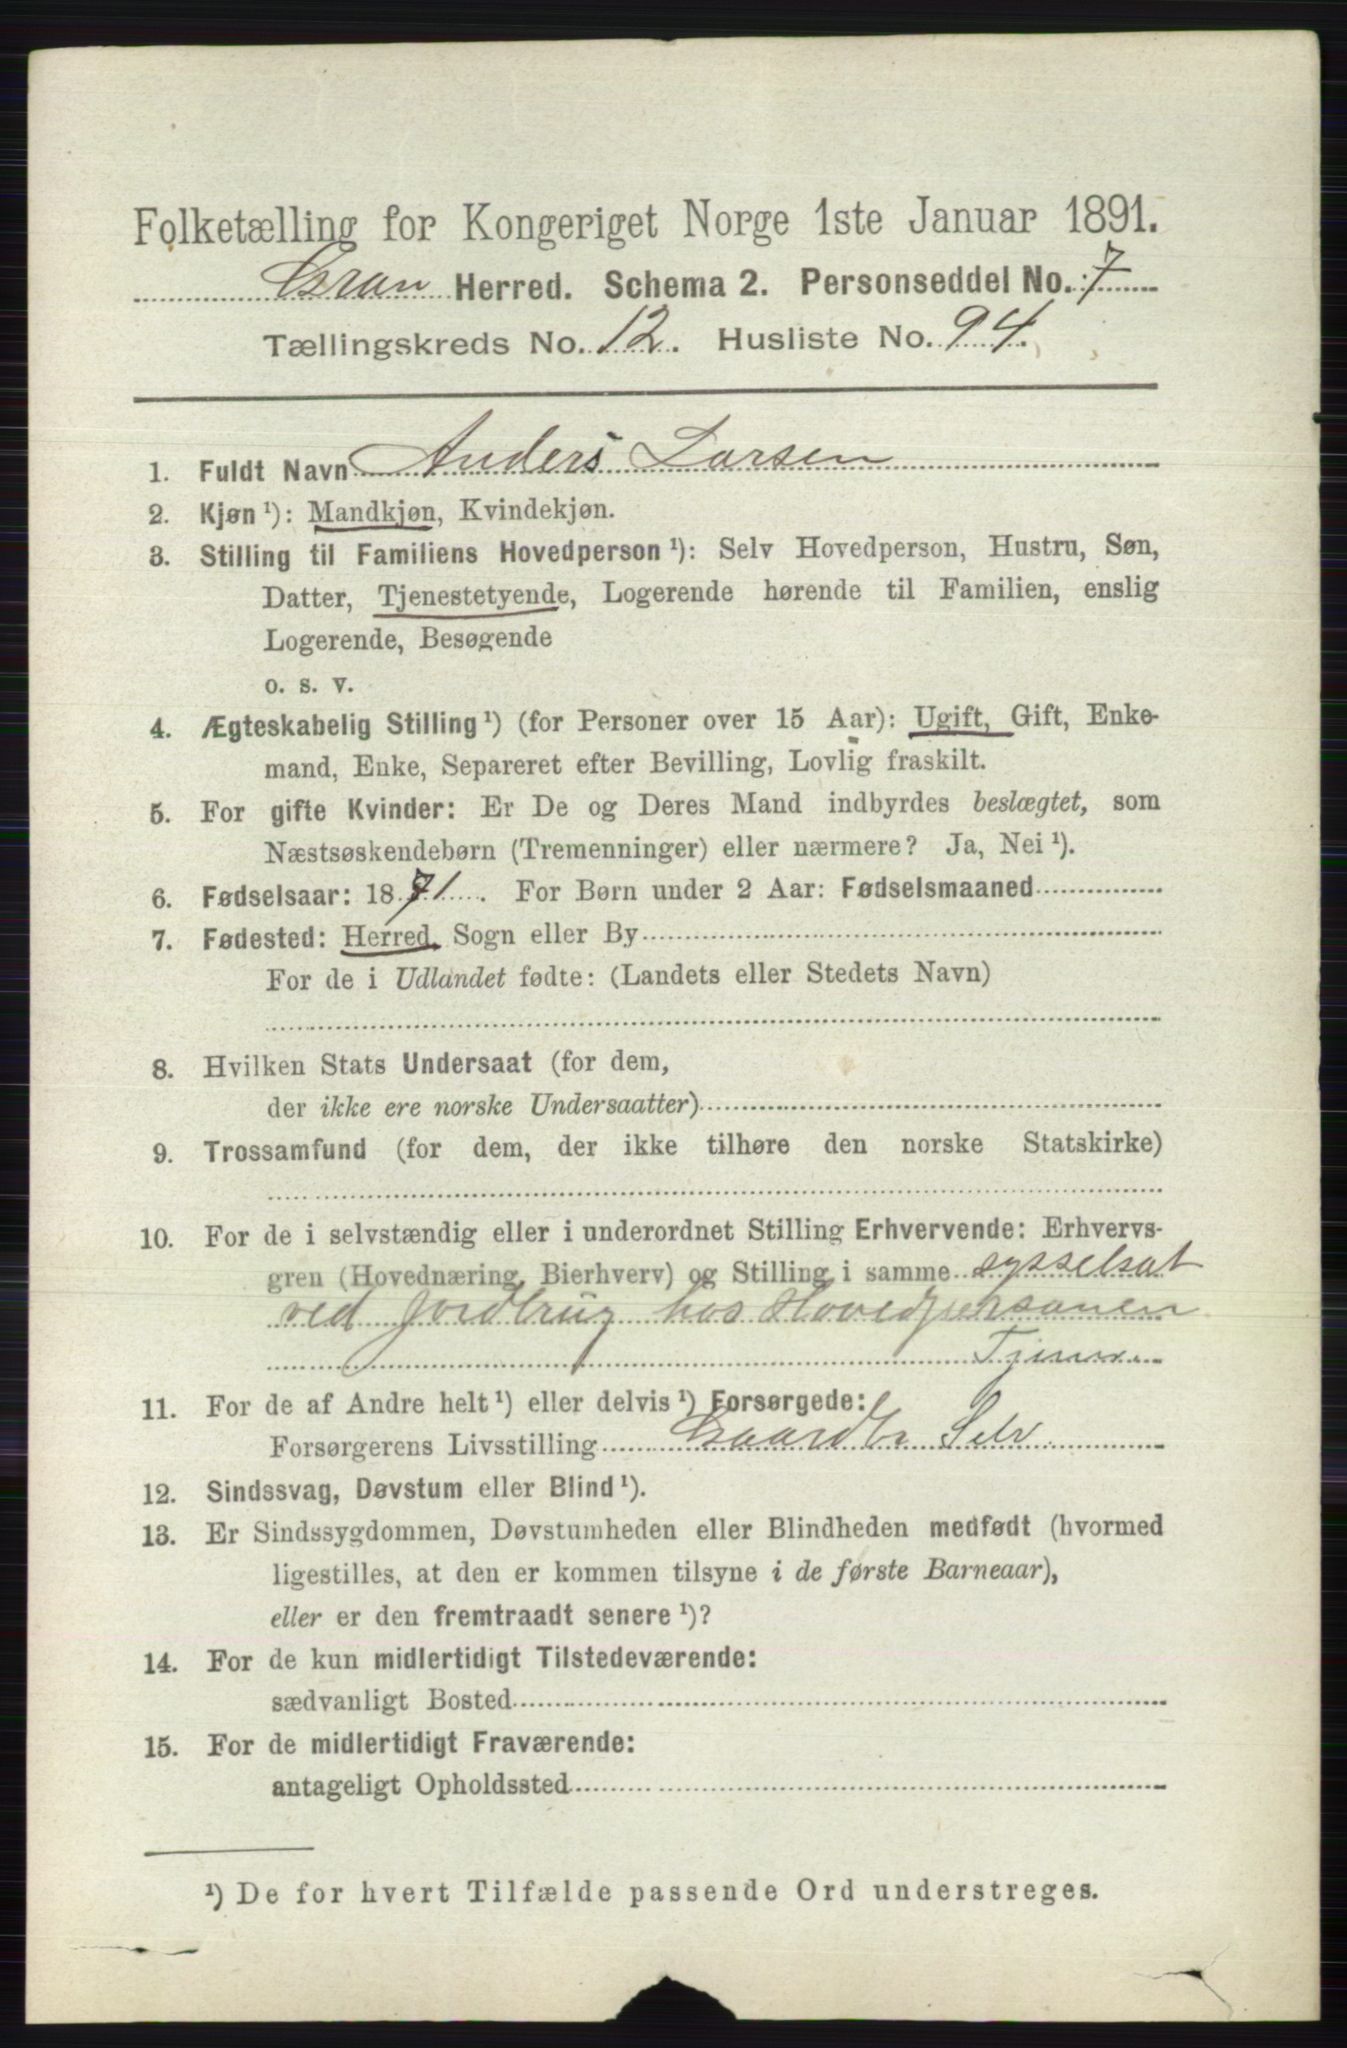 Folketælling for Kongeriget Norge 1ste Januar 1891.
Gran Herred. Schema 2. Personseddel No. 7
Tællingskreds No. 12. Husliste No. 94.
1. Fuldt Navn Anders Larsen
2. Kjøn ¹): Mandkjøn, Kvindekjøn.
3. Stilling til Familiens Hovedperson ¹): Selv Hovedperson, Hustru, Søn,
Datter, Tjenestetyende, Logerende hørende til Familien, enslig
Logerende, Besøgende
o. s. v.
4. Ægteskabelig Stilling ¹) (for Personer over 15 Aar): Ugift, Gift, Enke-
mand, Enke, Separeret efter Bevilling, Lovlig fraskilt.
5. For gifte Kvinder: Er De og Deres Mand indbyrdes beslægtet, som
Næstsøskendebørn (Tremenninger) eller nærmere? Ja, Nei ¹).
6. Fødselsaar: 1871. For Børn under 2 Aar: Fødselsmaaned
7. Fødested: Herred, Sogn eller By
For de i Udlandet fødte: (Landets eller Stedets Navn)
8. Hvilken Stats Undersaat (for dem,
der ikke ere norske Undersaatter)
9. Trossamfund (for dem, der ikke tilhøre den norske Statskirke)
10. For de i selvstændig eller i underordnet Stilling Erhvervende: Erhvervs-
gren (Hovednæring, Bierhverv) og Stilling i samme sysselsat
ved Jordbrug hos Hovedpersonen
11. For de af Andre helt ¹) eller delvis ¹) Forsørgede:
Forsørgerens Livsstilling Gaardbr Selv
12. Sindssvag, Døvstum eller Blind ¹).
13. Er Sindssygdommen, Døvstumheden eller Blindheden medfødt (hvormed
ligestilles, at den er kommen tilsyne i de første Barneaar),
eller er den fremtraadt senere ¹)?
14. For de kun midlertidigt Tilstedeværende:
sædvanligt Bosted
15. For de midlertidigt Fraværende:
antageligt Opholdssted
¹) De for hvert Tilfælde passende Ord understreges.